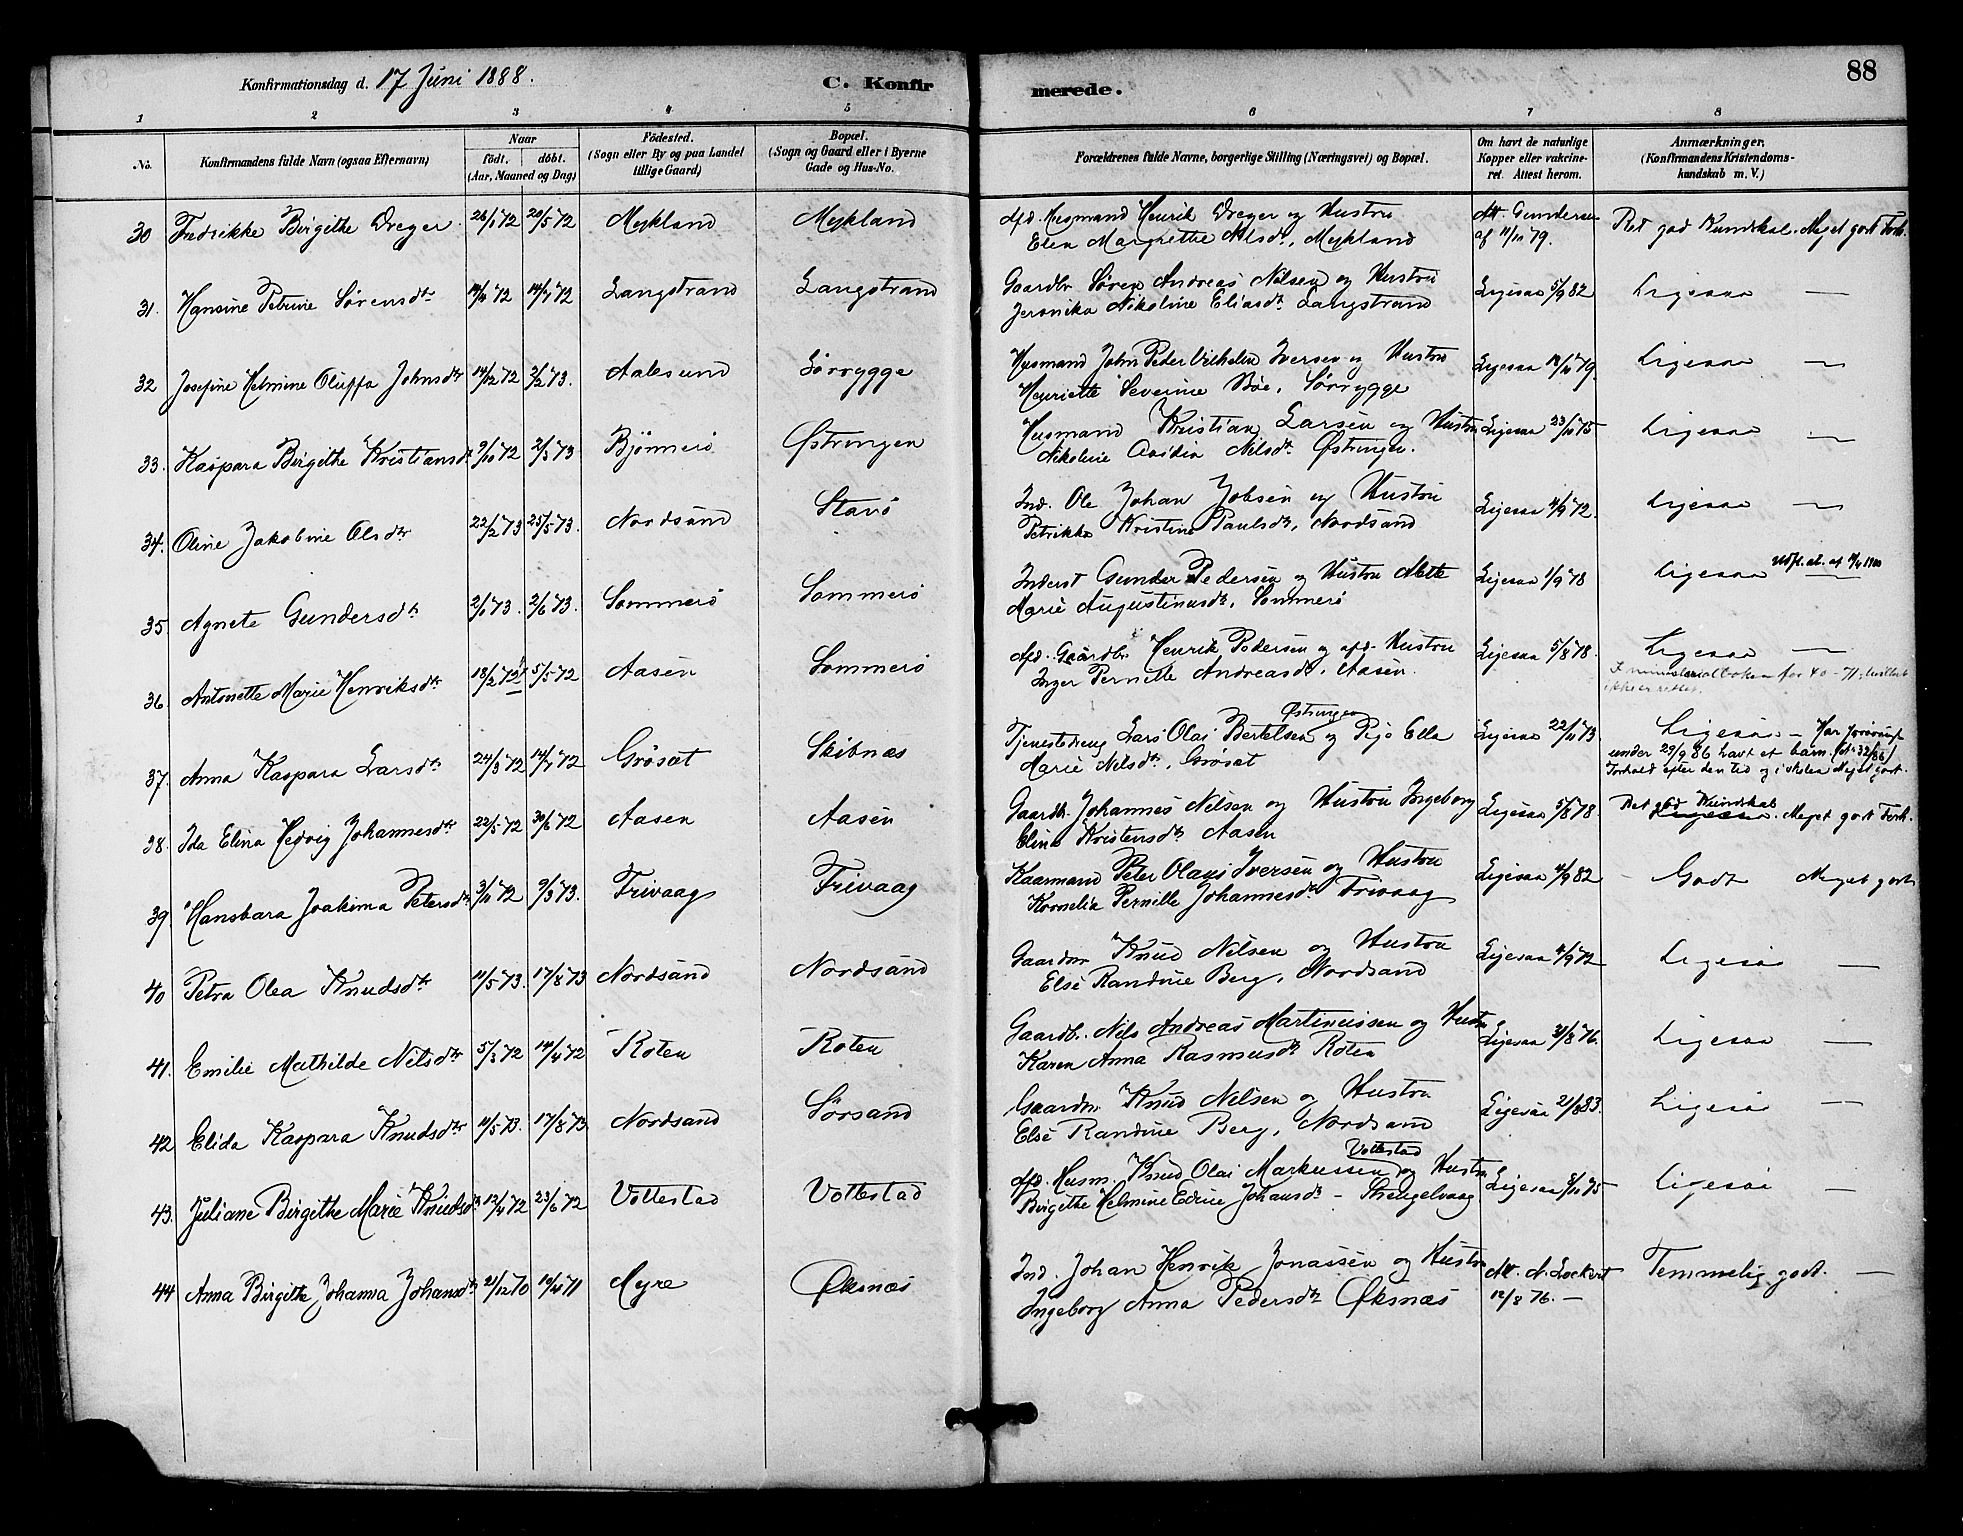 Konfirmationsdag d. 17 Juni 1888.
C. Konfirmerede.
88
1 2 3 4 5 6 7 8
No. Konfirmandens fulde Navn (ogsaa Efternavn)
Naar födt. döbt. (Aar, Maaned og Dag)
Födested. (Sogn eller By og paa Landet tillige Gaard)
Bopæl. (Sogn og Gaard eller i Byerne Gade og Hus-No.
Forældrenes fulde Navne, borgerlige Stilling (Næringsvei) og Bopæl.
Om havt de naturlige Kopper eller vakcineret. Attest herom.
Anmærkninger, (Konfirmandens Kristendomskundskab m. V.)
30 Fredrikke Birgithe Dreyer 26/1 72 20/5 72 Mykland Mykland
Afd. Husmand Henrik Dreyer og Hustru
Elen Margrethe Nilsd., Mykland
Att. Gundersen af 11/11 79.
Ret god Kundskab. Meget godt Forh.
31. Hansine Petrine Sörensdtr 14/4 72 14/7 72 Langstrand Langstrand
Gaardbr. Sören Andreas Nilsen og Hustru
Jeronika Nikoline Eliasdtr Langstrand
Ligesaa 5/9 82
Ligesaa —
32 Josefine Helmine Oluffa Johnsdtr 14/12 72 2/2 73. Aalesund Sörrygge
Husmand John Peder Vilhelm Iversen og Hustru
Henriette Severine Böe, Sörrygge
Ligesaa 19/11 79.
Ligesaa —
33. Kaspara Birgithe Kristiansdtr 9/10 72 2/3 73 Björnerö Østringen
Husmand Kristian Larsen og Hustru
Nikoline Nilsdtr Østringen.
Ligesaa 23/10 75
Ligesaa —
34. Oline Jakobine Olsdtr 22/2 73 25/5 73. Nordsand Stavö
Ind. Ole Johan Jobsen og Hustru
Petrikke Kristine Paulsdtr, Nordsand
Ligesaa 4/9 72.
Ligesaa —
35 Agnete Gundersdtr 2/1 73. 2/6 73. Sommerö Sommerö
Inderst Gunder Pedersen og Hustru Mette
Marie Augustinusdtr, Sommerö
Ligesaa 1/9 78
Ligesaa
36. Antonette Marie Henriksdtr 18/2 72 5/5 72 Aasen Sommerö
Afd. Gaardbr. Henrik Pedersen og afd. Hustru
Inger Pernille Andreasdtr, Aasen.
Ligesaa 5/8 78.
Ligesaa —
I ministerialboken for
ikke rettet.
37. Anna Kaspara Larsdtr 24/3 72 14/7 72 Grösæt Skibnæs
Østringen
Tjenestedreng Lars Olai Bertelsen og Pige Ella
Marie Nilsdtr, Grösæt
Ligesaa 22/11 73.
Ligesaa —
under 29/9 86 havt et barn (
Forhold efter den tid og i skolen Meget godt.
38. Ida Elina Hedvig Johannesdtr 22/5 72 30/6 72 Aasen Aasen
Gaardb. Johannes Nilsen og Hustru Ingeborg
Elina Kristensdtr Aasen
Ligesaa 5/8 78.
Ret god Kundskab. Meget godt Forh.
39. Hansbara Joakima Petersdtr 3/11 72 9/3 73. Frivaag Frivaag
Kaarmand Peter Olaus Iversen og Hustru
Kornelia Pernille Johannesdtr Frivaag
Ligesaa 4/9 82
Godt Meget godt
40 Petra Olea Knudsdtr 11/5 73. 17/8 73 Nordsand Nordsand
Gaardm Knud Nilsen og Hustru
Else Randine Berg, Nordsand
Ligesaa 4/9 72
Ligesaa —
41. Emilie Mathilde Nilsdtr 5/3 72 14/4 72 Roten Roten
Gaardb. Nils Andreas Martinussen og Hustru
Karen Anna Rasmusdtr Roten
Ligesaa 31/8 76.
Ligesaa —
42 Elida Kaspara Knudsdtr 11/5 73. 17/8 73 Nordsand Sörsand
Gaardm Knud Nilsen og Hustru
Else Randine Berg, Nordsand
Ligesaa 21/8 83.
Ligesaa —
43. Juliane Birgithe Marie Knudsdtr 12/4 72 23/6 72 Vottestad Vottestad
Vottestad
Afd. Husm. Knud Olai Markussen og Hustru
Birgithe Helmine Edine Johansdtr - Strengelvaag
Ligesaa 3/11 75
Ligesaa —
44 Anna Birgithe Johanna Johansdtr 21/12 70 10/4 71 Myre Øksnæs
Ind. Johan Henrik Jonassen og Hustru
Ingeborg Anna Pedersdtr Øksnæs
Att. N. Lockert 12/8 76. —
Temmelig godt. —